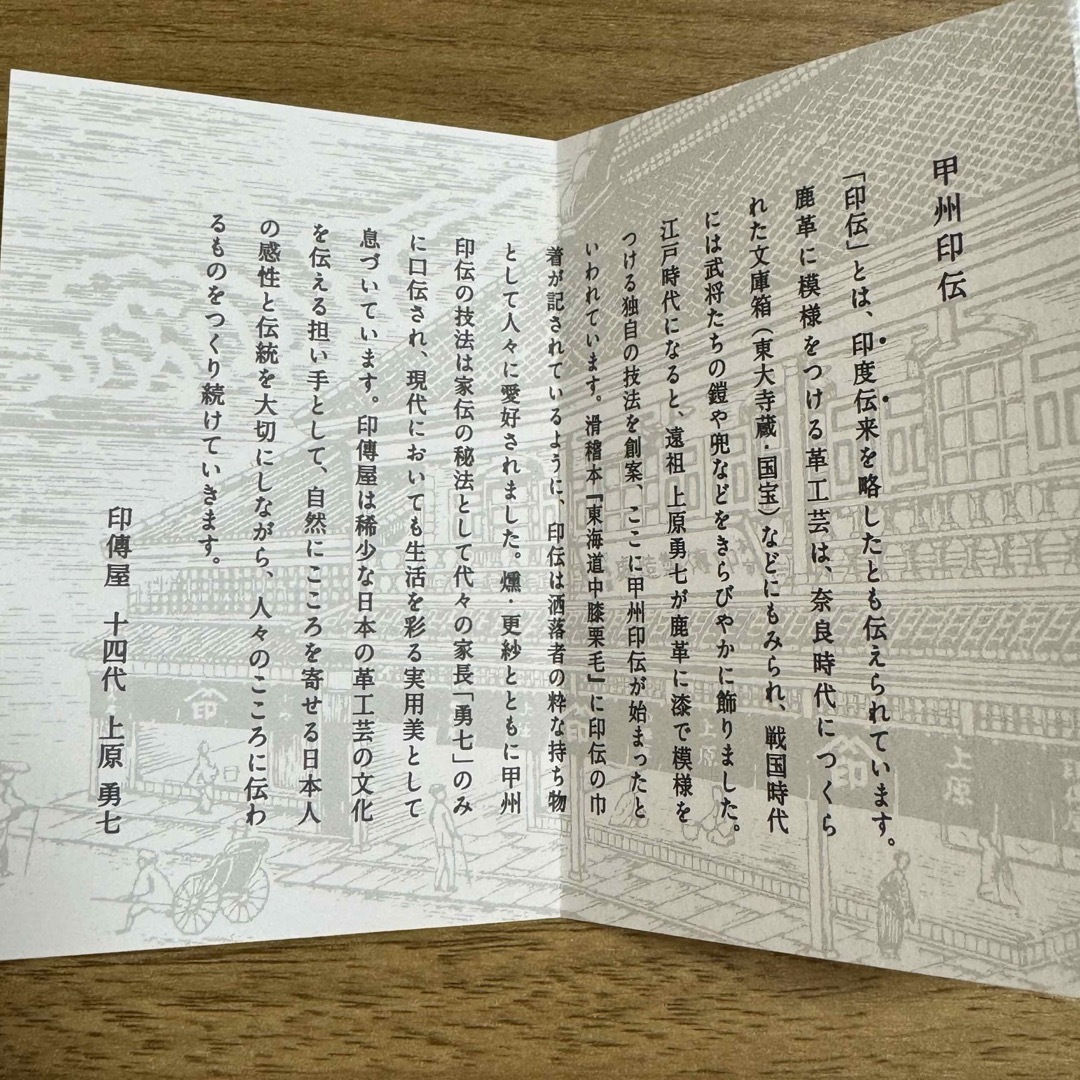 甲州印伝
「印伝」とは、印度伝来を略したとも伝えられています。
鹿革に模様をつける革工芸は、奈良時代につくら
れた文庫箱（東大寺蔵・国宝）などにもみられ、戦国時代
には武将たちの鎧や兜などをきらびやかに飾りました。
江戸時代になると、遠祖 上原勇七が鹿革に漆で模様を
つける独自の技法を創案、ここに甲州印伝が始まったと
いわれています。滑稽本『東海道中膝栗毛』に印伝の巾
着が記されているように、印伝は洒落者の粋な持ち物
として人々に愛好されました。燻・更紗とともに甲州
印伝の技法は家伝の秘法として代々の家長「勇七」のみ
に口伝され、現代においても生活を彩る実用美として
息づいています。印傳屋は稀少な日本の革工芸の文化
を伝える担い手として、自然にこころを寄せる日本人
の感性と伝統を大切にしながら、人々のこころに伝わ
るものをつくり続けていきます。
印傳屋 十四代 上原 勇七
上原
上原
印